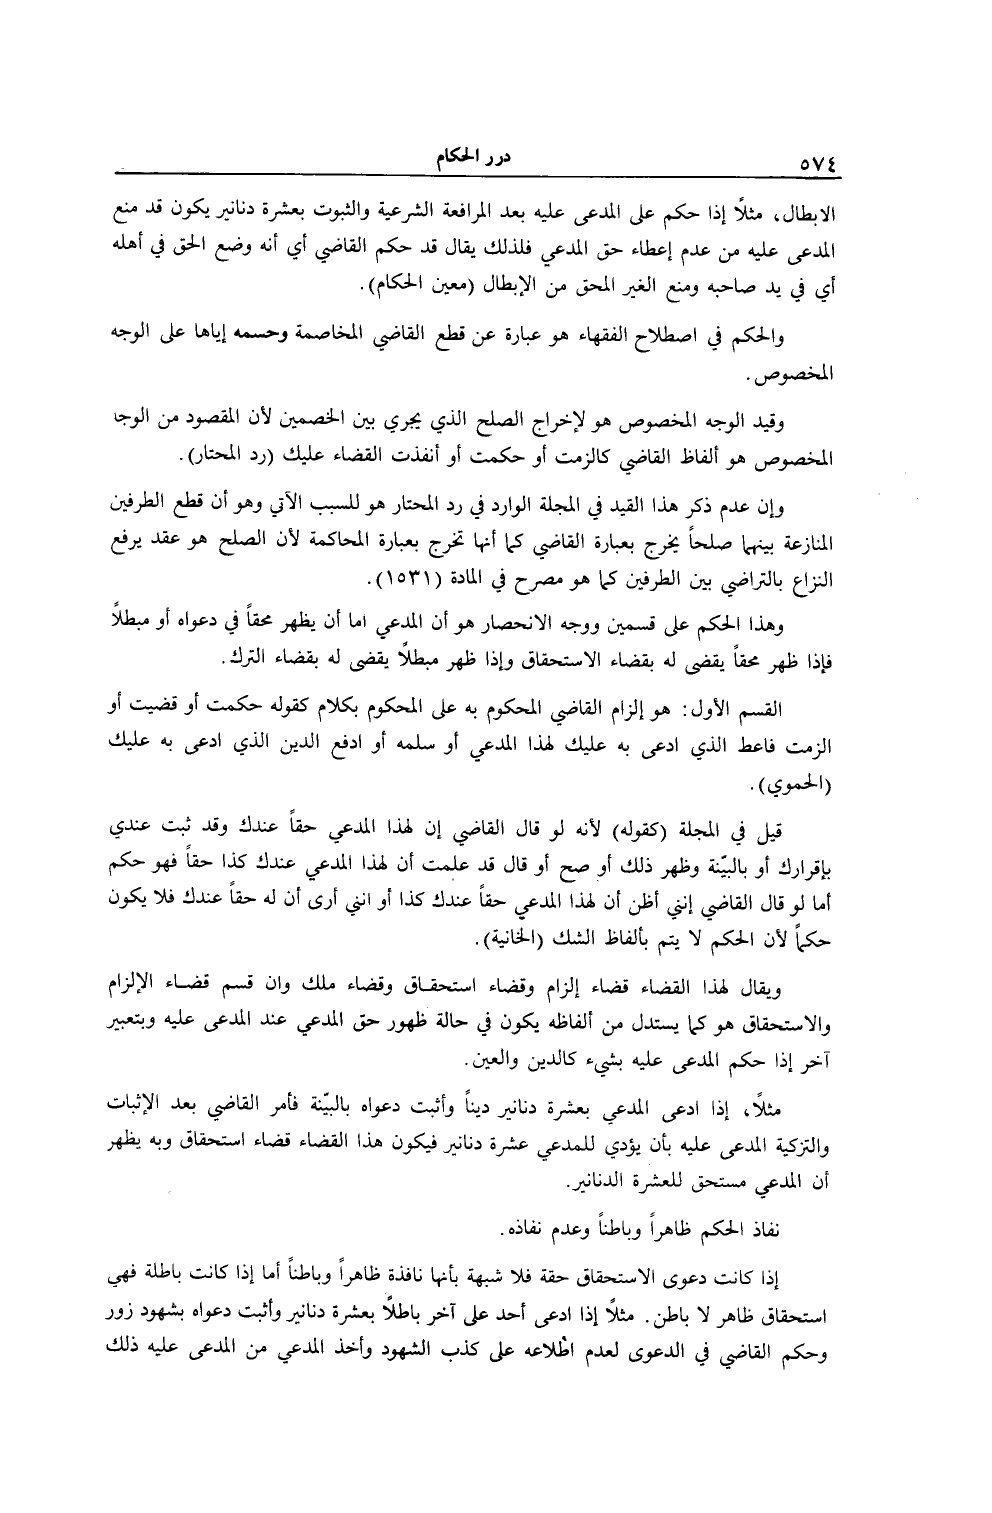 ٥٧٤
درر الحكام
الابطال، مثلًا إذا حكم على المدعى عليه بعد المرافعة الشرعية والثبوت بعشرة دنانير يكون قد منع
المدعى عليه من عدم إعطاء حق المدعي فلذلك يقال قد حكم القاضي أي أنه وضع الحق في أهله
أي في يد صاحبه ومنع الغير المحق من الإبطال (معين الحكام).
والحكم في اصطلاح الفقهاء هو عبارة عن قطع القاضي المخاصمة وحسمه إياها على الوجه
المخصوص.
وقيد الوجه المخصوص هو لإخراج الصلح الذي يجري بين الخصمين لأن المقصود من الوجا
المخصوص هو ألفاظ القاضي كالزمت أو حكمت أو أنفذت القضاء عليك (رد المحتار).
وإن عدم ذكر هذا القيد في المجلة الوارد في رد المحتار هو للسبب الآتي وهو أن قطع الطرفين
المنازعة بينهما صلحاً يخرج بعبارة القاضي كما أنها تخرج بعبارة المحاكمة لأن الصلح هو عقد يرفع
النزاع بالتراضي بين الطرفين كما هو مصرح في المادة (١٥٣١).
وهذا الحكم على قسمين ووجه الانحصار هو أن المدعي اما أن يظهر محقاً في دعواه أو مبطلاً
فإذا ظهر محقاً يقضى له بقضاء الاستحقاق وإذا ظهر مبطلًا يقضى له بقضاء الترك.
القسم الأول: هو إلزام القاضي المحكوم به على المحكوم بكلام كقوله حكمت أو قضيت أو
الزمت فاعط الذي ادعى به عليك لهذا المدعي أو سلمه أو ادفع الدين الذي ادعى به عليك
(الحموي).
قيل في المجلة (كقوله) لأنه لو قال القاضي إن لهذا المدعي حقاً عندك وقد ثبت عندي
بإقرارك أو بالبيّنة وظهر ذلك أو صح أو قال قد علمت أن لهذا المدعي عندك كذا حقاً فهو حكم
أما لو قال القاضي إنني أظن أن لهذا المدعي حقاً عندك كذا أو انني أرى أن له حقاً عندك فلا يكون
حكماً لأن الحكم لا يتم بألفاظ الشك (الخانية).
ويقال لهذا القضاء قضاء إلزام وقضاء استحقاق وقضاء ملك وان قسم قضاء الإلزام
والاستحقاق هو كما يستدل من ألفاظه يكون في حالة ظهور حق المدعي عند المدعى عليه وبتعبير
آخر إذا حكم المدعى عليه بشيء كالدين والعين.
مثلًا، إذا ادعى المدعي بعشرة دنانير ديناً وأثبت دعواه بالبيّنة فأمر القاضي بعد الإثبات
والتزكية المدعى عليه بأن يؤدي للمدعي عشرة دنانير فيكون هذا القضاء قضاء استحقاق وبه يظهر
أن المدعي مستحق للعشرة الدنانير.
نفاذ الحكم ظاهراً وباطناً وعدم نفاذه.
إذا كانت دعوى الاستحقاق حقة فلا شبهة بأنها نافذة ظاهراً وباطناً أما إذا كانت باطلة فهي
استحقاق ظاهر لا باطن. مثلًا إذا ادعى أحد على آخر باطلًا بعشرة دنانير وأثبت دعواه بشهود زور
وحكم القاضي في الدعوى لعدم اطلاعه على كذب الشهود وأخذ المدعي من المدعى عليه ذلك